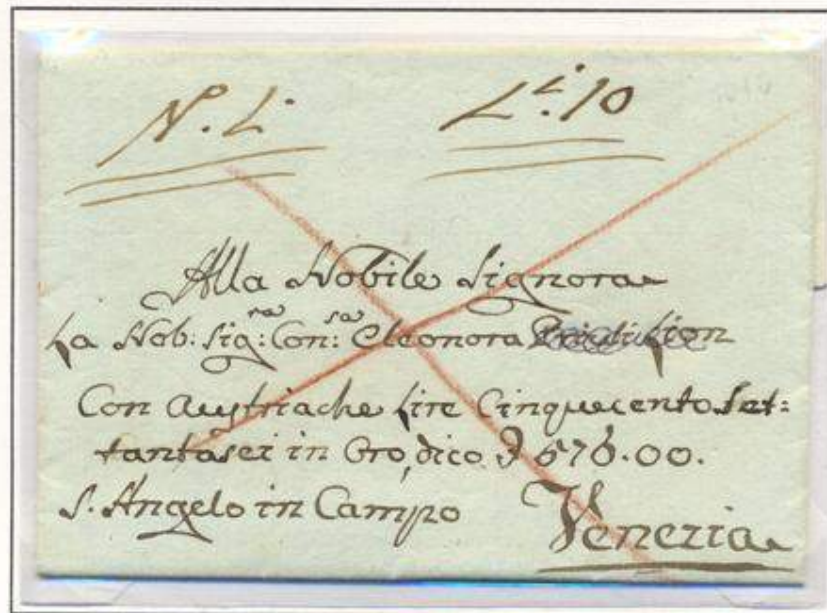 N.º L.
L.i 10
Alla Nobile Signora
La Nob: Sig:ra Con:sa Eleonora Lion
Con Austriache Lire Cinquecento Set:
tantasei in Oro, dico 576.00.
S. Angelo in Campo
Venezia